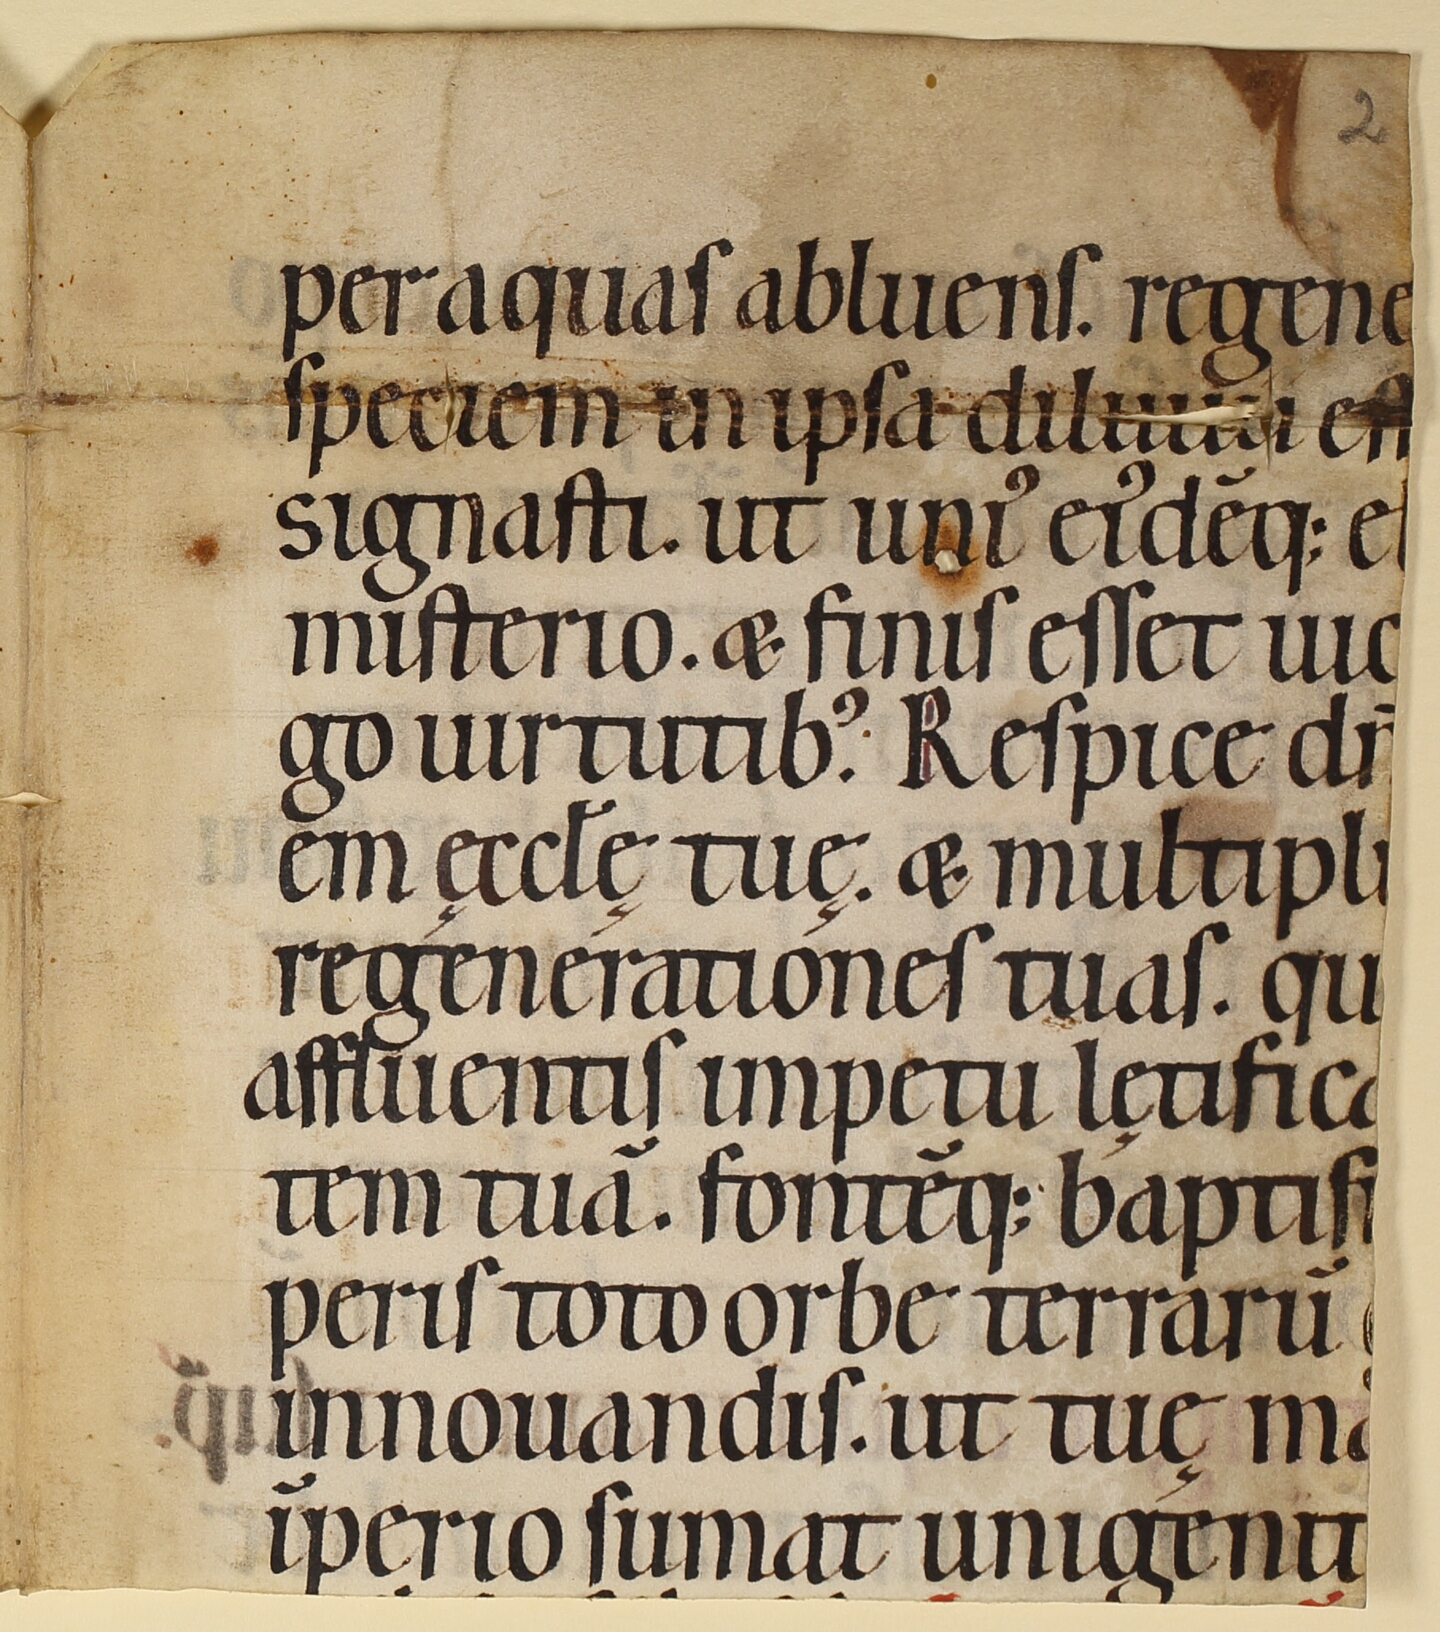 2
per aquas abluens. regene
speciem in ipsa diluuii eff
signasti. ut uni᾽ ei᾽dēq; el
misterio. & finis esset uic
go uirtutib᾽. Respice dn̄
em ęccłę tuę. & multipli
regénerationes tuas. qu
affluentis impetu lętifica
tem tuā. fontēq; baptism
peris toto orbe terrarū
innouandis. ut tuę ma
īperio sumat unigénit